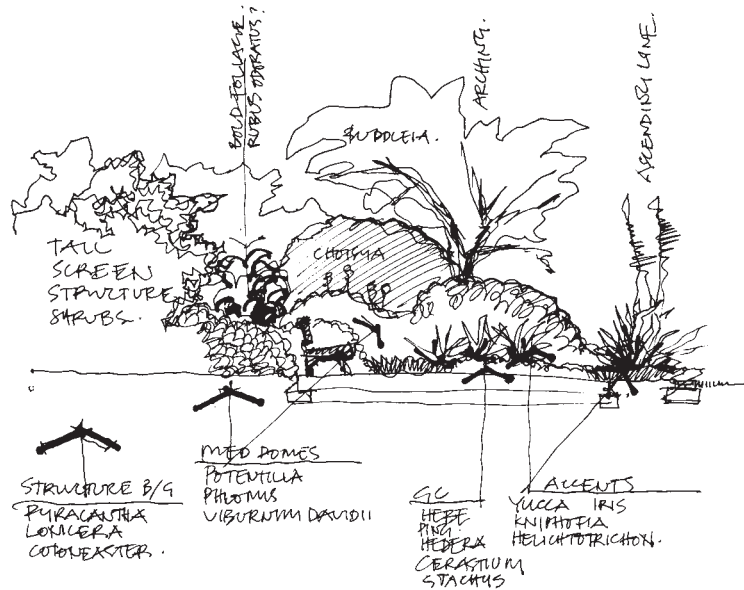 BOLD FOLIAGE.
RUBUS ODORATUS?
ARCHING.
ASCENDING LINE.
BUDDLEIA.
CHOISYA
TALL
SCREEN
STRUCTURE
SHRUBS.
STRUCTURE B/G
PYRACANTHA
LONICERA
COTONEASTER.
MED DOMES
POTENTILLA
PHLOMIS
VIBURNUM DAVIDII
GC
HEBE
PING.
HEDERA
CERASTIUM
STACHYS
ACCENTS
YUCCA IRIS
KNIPHOFIA
HELICHTOTRICHON.